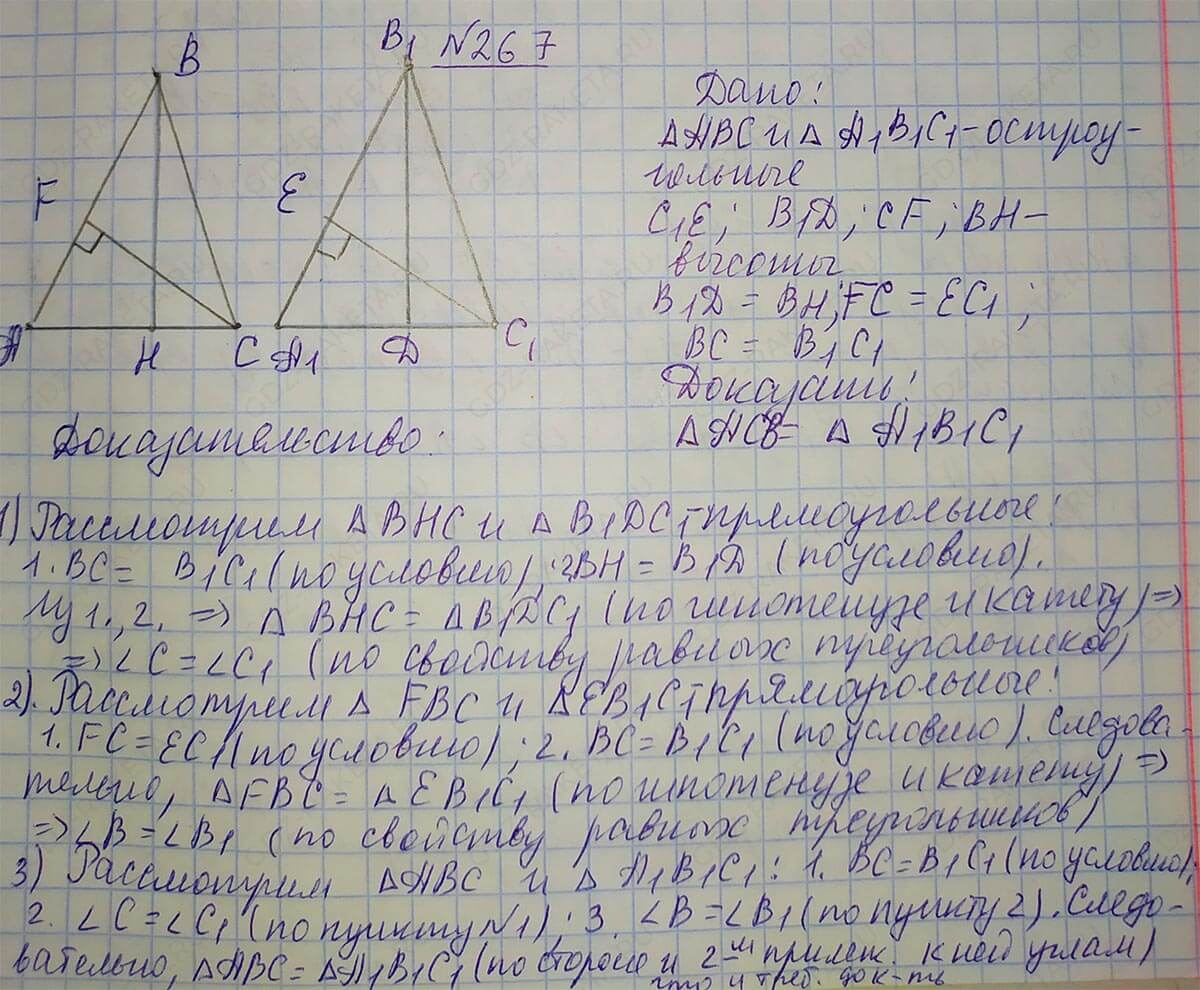 B
B₁
№267
F
E
A
H
C
A₁
D
C₁
Дано:
△ABC и △A₁B₁C₁ - остроу-
гольные
C₁E; B₁D; CF; BH -
высоты
B₁D = BH; FC = EC₁;
BC = B₁C₁
Доказать:
△ACB = △A₁B₁C₁
Доказательство:
1) Рассмотрим △BHC и △B₁DC₁ - прямоугольные:
1. BC = B₁C₁ (по условию); 2. BH = B₁D (по условию).
Из 1., 2. => △BHC = △B₁DC₁ (по гипотенузе и катету) =>
=> ∠C = ∠C₁ (по свойству равных треугольников)
2). Рассмотрим △FBC и △EB₁C₁ - прямоугольные:
1. FC = EC₁ (по условию); 2. BC = B₁C₁ (по условию). Следова-
тельно, △FBC = △EB₁C₁ (по гипотенузе и катету) =>
=> ∠B = ∠B₁ (по свойству равных треугольников)
3) Рассмотрим △ABC и △A₁B₁C₁: 1. BC = B₁C₁ (по условию);
2. ∠C = ∠C₁ (по пункту №1); 3. ∠B = ∠B₁ (по пункту 2). Следо-
вательно, △ABC = △A₁B₁C₁ (по стороне и 2-м прилеж. к ней углам)
что и треб. док-ть